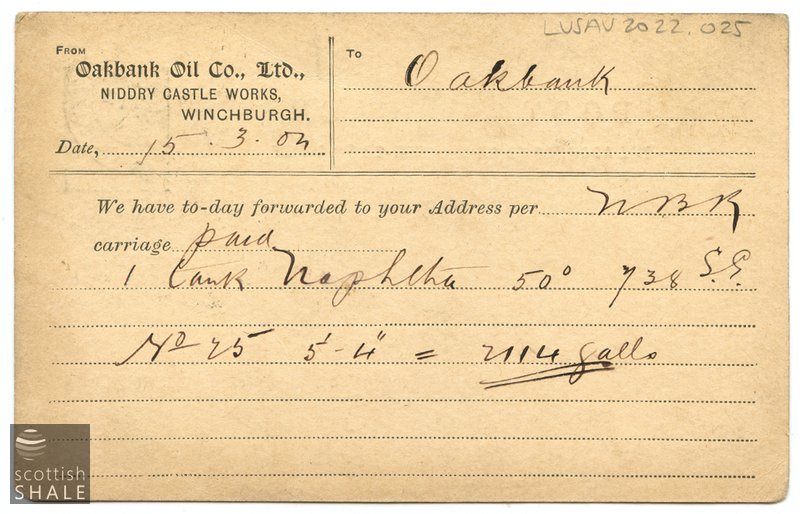 LUSAV 2022.025
FROM
Oakbank Oil Co., Ltd.,
NIDDRY CASTLE WORKS,
WINCHBURGH.
Date, 15.3.04
TO
Oakbank
We have to-day forwarded to your Address per NBR
carriage paid
1 Tank Naphtha 50° 738 S.G.
No 25 5'-4" = 2114 galls
scottish
SHALE